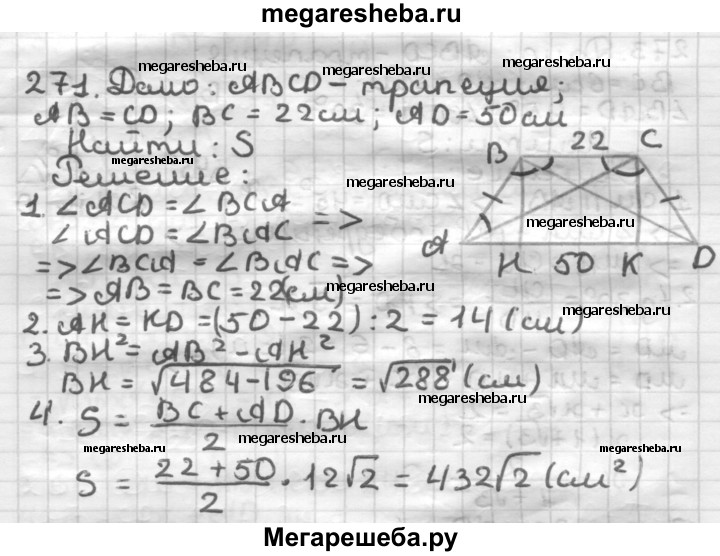 megaresheba.ru
271. Дано: ABCD – трапеция;
AB = CD; BC = 22см; AD = 50см
Найти: S
Решение:
1. ∠ACD = ∠BCA
∠ACD = ∠BAC =>
=> ∠BCA = ∠BAC =>
=> AB = BC = 22(см)
2. AH = KD = (50 – 22) : 2 = 14 (см)
3. BH² = AB² – AH²
BH = √484–196 = √288 (см)
4. S = BC + AD / 2 · BH
S = 22 + 50 / 2 · 12√2 = 432√2 (см²)
B 22 C
A H 50 K D
megaresheba.ru
megaresheba.ru
megaresheba.ru
megaresheba.ru
megaresheba.ru
megaresheba.ru
megaresheba.ru
megaresheba.ru
megaresheba.ru
megaresheba.ru
Мегарешеба.ру